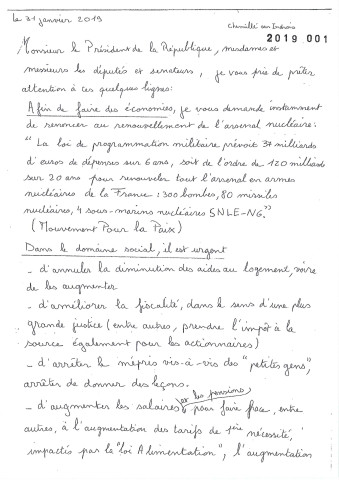 le 31 janvier 2019
Chemillé sur Indrois
2019 001
Monsieur le Président de la République, mesdames et
messieurs les députés et senateurs, je vous prie de prêter
attention à ces quelques lignes:
Afin de faire des économies, je vous demande instamment
de renoncer au renouvellement de l'arsenal nucléaire:
"La loi de programmation militaire prévoit 37 milliards
d'euros de dépenses sur 6 ans, soit de l'ordre de 120 milliards
sur 20 ans pour renouveler tout l'arsenal en armes
nucléaires de la France: 300 bombes, 80 missiles
nucléaires, 4 sous-marins nucléaires SNLE-NG."
(Mouvement Pour la Paix)
Dans le domaine social, il est urgent
_ d'annuler la diminution des aides au logement, voire
de les augmenter
_ d'améliorer la fiscalité, dans le sens d'une plus
grande justice (entre autres, prendre l'impôt à la
source également pour les actionnaires)
_ d'arrêter le mépris vis-à-vis des "petites gens",
arrêter de donner des leçons.
_ d'augmenter les salaires et les pensions pour faire face, entre
autres, à l'augmentation des tarifs de 1ère nécessité,
impactés par la "loi Alimentation", l'augmentation